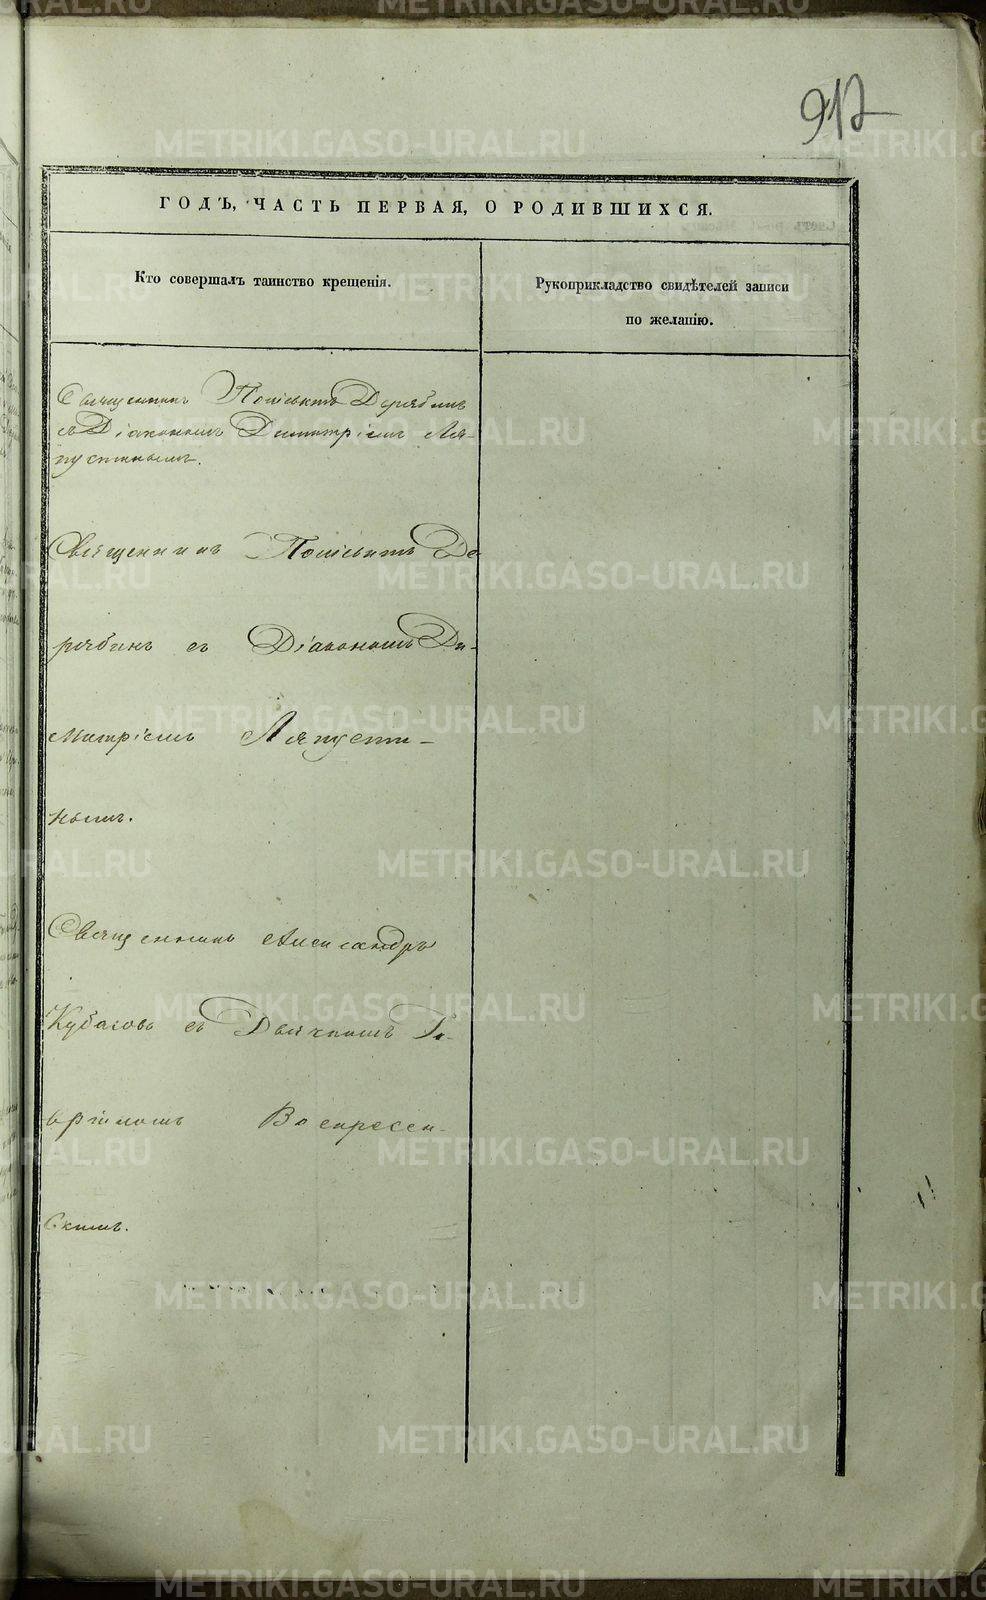 912
ГОДЪ, ЧАСТЬ ПЕРВАЯ, О РОДИВШИХСЯ.
Кто совершалъ таинство крещенія.
Рукоприкладство свидѣтелей записи
по желанію.
Священникъ Поліевктъ Дерябинъ
съ Діакономъ Димитріемъ Ля-
пустинымъ.
Священникъ Поліевктъ Де
рябинъ съ Діакономъ Ди-
митріемъ Ляпусти-
нымъ.
Священникъ Александръ
Кубасовъ съ Дьячкомъ Га-
вріиломъ Воскресен-
скимъ.
METRIKI.GASO-URAL.RU